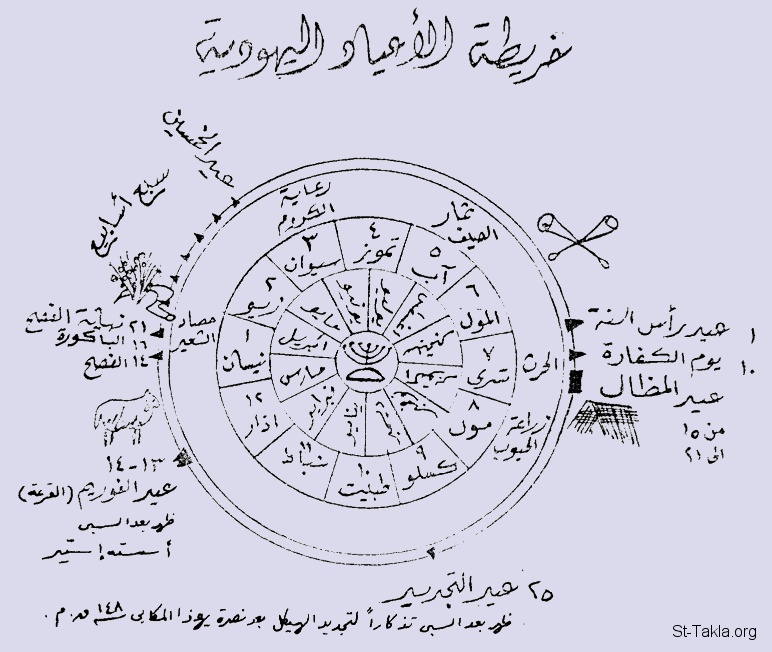 خريطة الأعياد اليهودية
عيد الخمسين
سبع أسابيع
رعاية
الكروم
ثمار
الصيف
٣
سيوان
٤
تموز
٥
آب
٦
المول
٧
تسرى
٨
مول
٩
كسلو
١٠
طبنيت
١١
شباط
١٢
اذار
١
نيسان
٢
زيو
مايو
ابريل
مارس
حصاد
الشعير
الحرث
زراعة
الحبوب
٢١ نهاية الفصح
١٦ الباكورة
١٤ الفصح
١ عيد رأس السنة
١٠ يوم الكفارة
عيد المظال
من ١٥
الى ٢١
١٣-١٤
عيد الفوريم (القرعة)
ظهر بعد السبى
أسسته إستير
٢٥ عيد التجديد
ظهر بعد السبى تذكاراً لتجديد الهيكل بعد نصرة يهوذا المكابى سنة ١٤٨ ق.م.
St-Takla.org